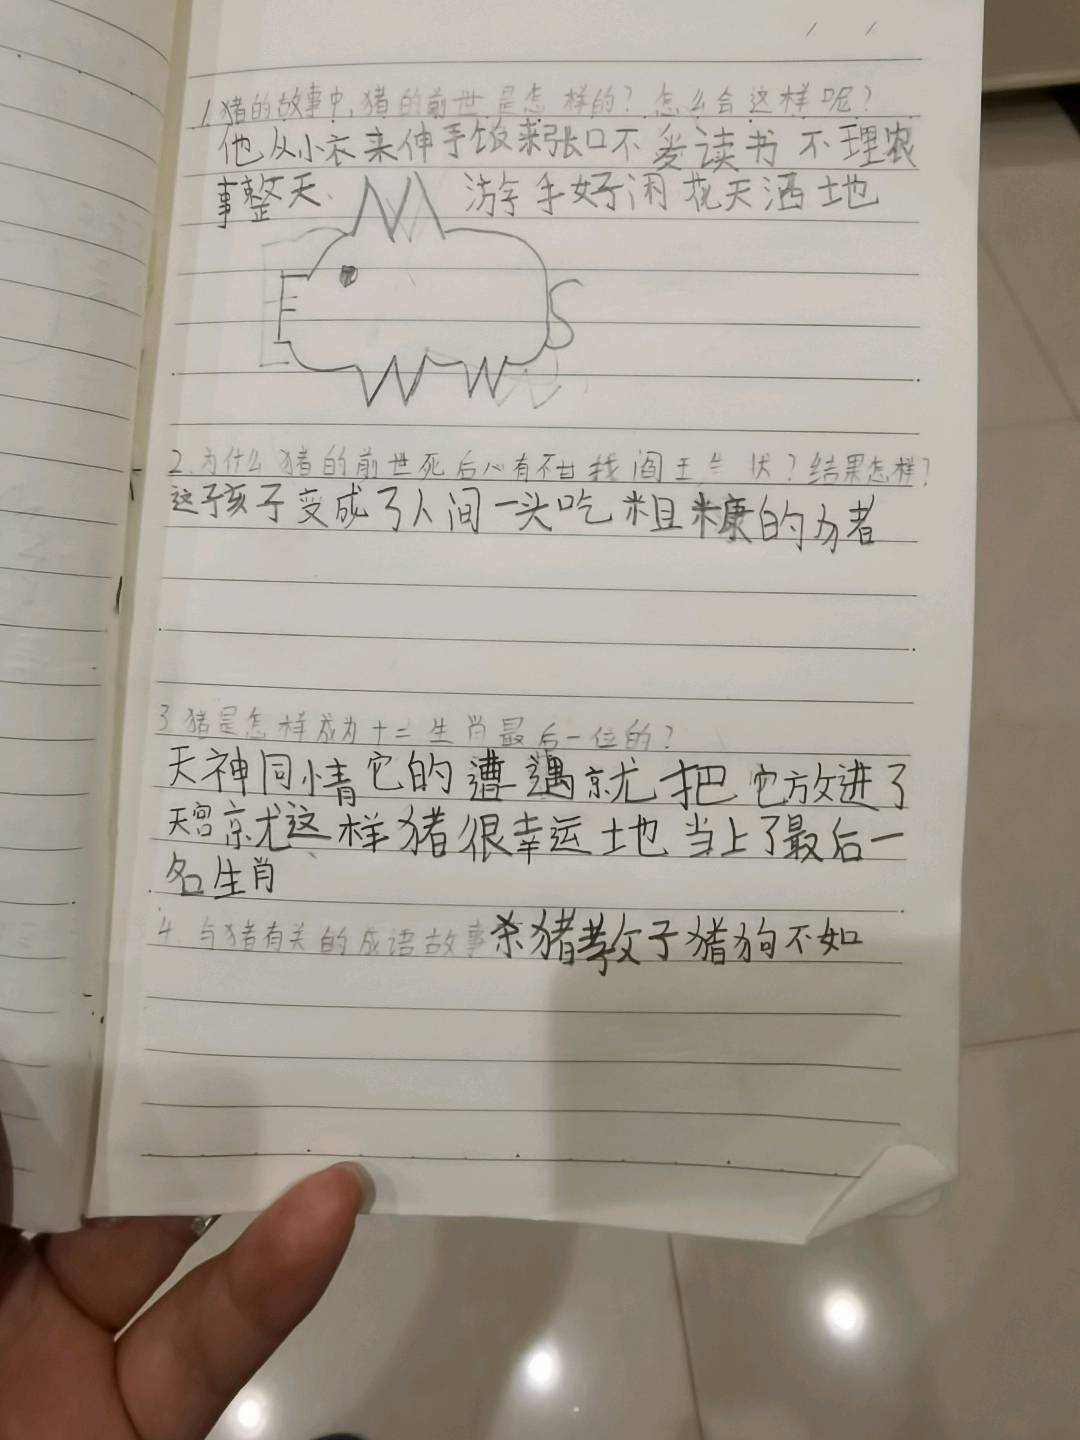 1.猪的故事中,猪的前世是怎样的?怎么会这样呢?
他从小衣来伸手饭来张口不爱读书不理农
事整天 游手好闲花天酒地
2.为什么猪的前世死后心有不甘找阎王 状?结果怎样?
这子孩子变成了人间一头吃粗糠的
3 猪是怎样成为十二生肖最后一位的?
天神同情它的遭遇就把它放进了
天宫就这样猪很幸运地当上了最后一
名生肖
4.与猪有关的成语故事杀猪教子猪狗不如